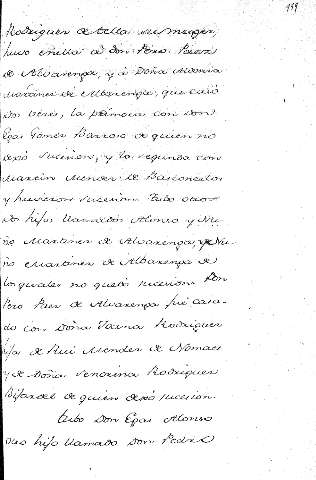 199
Rodriguez de tella su muger,
huvo en ella á Don Pero Paez
de Alvarenga, y á Doña
Martinez de Albarenga, que casó
dos veces, la primera con Don
Egas Gomez Barroso de quien no
dexó sucesion, y la segunda con
Martin Mendez de Basconcelos
y huvieron sucesion tubo otros
Dos hijos llamados Alonso y Nu-
ño Martinez de Alvarenga, y Nu-
ño Martinez de Albarenga de
los quales no quedó sucesion Don
Pero Paez de Alvarenga fué casa-
do con Doña Rodriguez
hija de Rui Mendez de
y de Doña Rodriguez
de quien dexó sucesion.
tubo Don Egas Alonso
otro hijo llamado Don Pedro